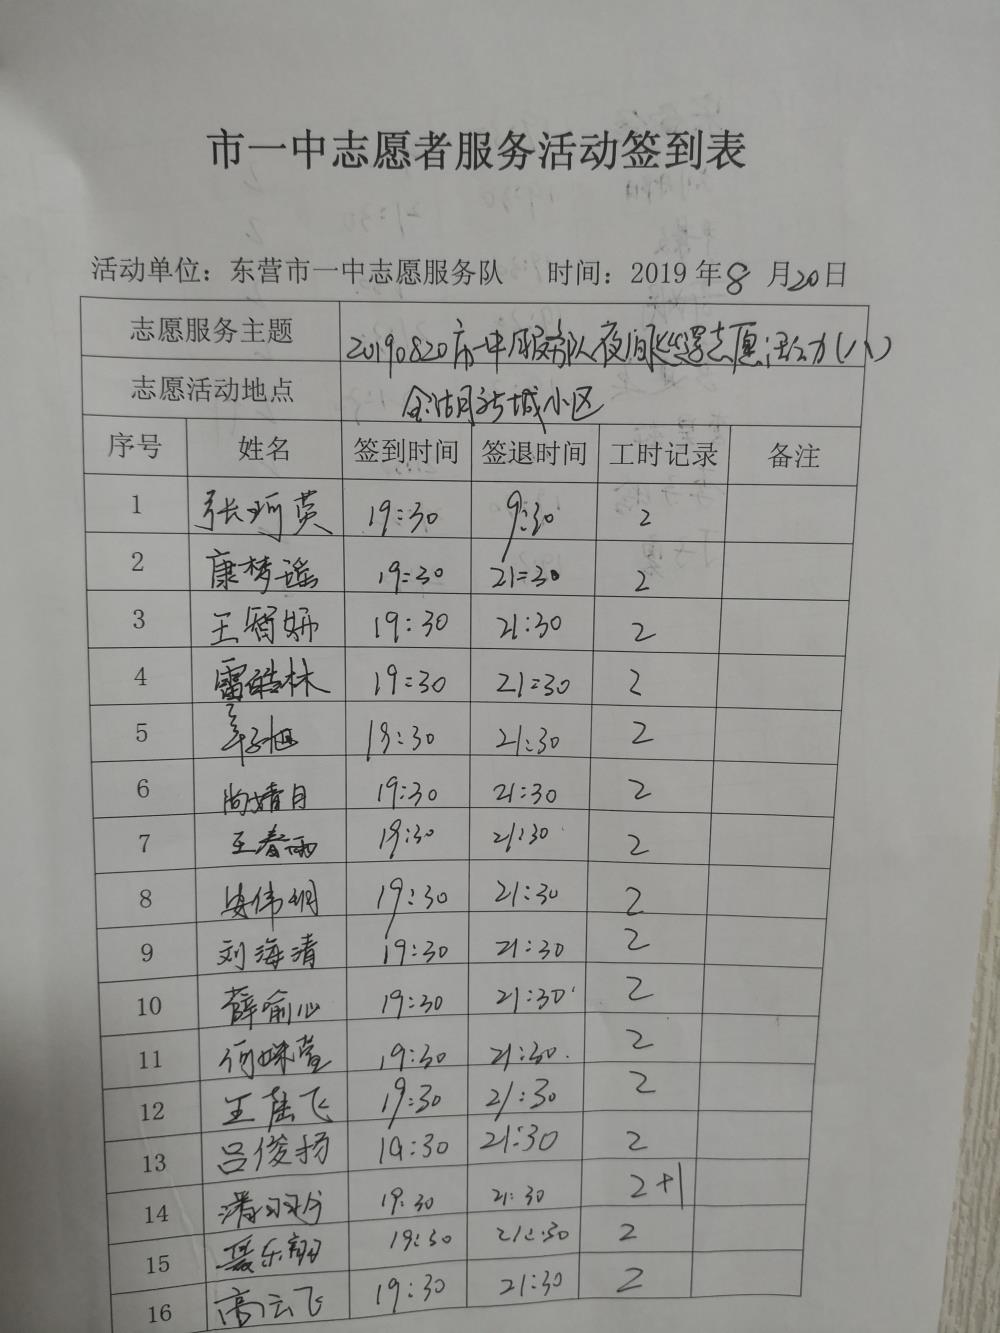 市一中志愿者服务活动签到表
活动单位：东营市一中志愿服务队 时间：2019 年 8 月 20 日
志愿服务主题 20190820市一中服务队夜间巡逻志愿活动(八)
志愿活动地点 金湖新城小区
序号 姓名 签到时间 签退时间 工时记录 备注
1 张珂英 19:30 9:30 2
2 康梦瑶 19:30 21:30 2
3 王智妍 19:30 21:30 2
4 雷皓林 19:30 21:30 2
5 19:30 21:30 2
6 尚婧月 19:30 21:30 2
7 王春雨 19:30 21:30 2
8 安伟明 19:30 21:30 2
9 刘海清 19:30 21:30 2
10 薛喻心 19:30 21:30 2
11 19:30 21:30 2
12 飞 19:30 21:30 2
13 吕俊扬 19:30 21:30 2
14 19:30 21:30 2+1
15 聂东翔 19:30 21:30 2
16 高云飞 19:30 21:30 2